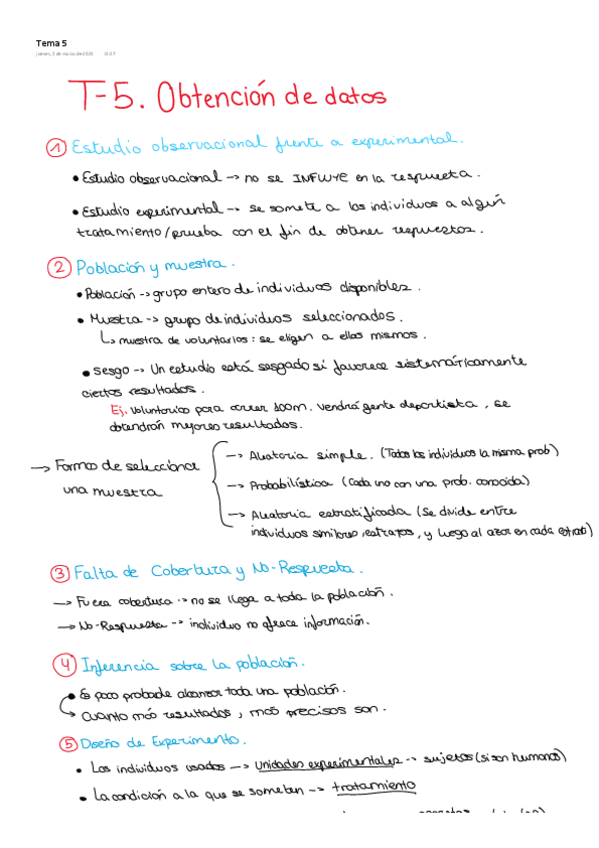 Tema 5
jueves, 3 de marzo de
T-5. Obtención de datos
① Estudio observacional frente a experimental.
• Estudio observacional -> no se INFLUYE en la respuesta.
• Estudio experimental -> se somete a los individuos a algún
tratamiento/prueba con el fin de obtener respuestas.
② Población y muestra.
• Población -> grupo entero de individuos disponibles.
• Muestra -> grupo de individuos seleccionados.
↳ muestra de voluntarios: se eligen a ellos mismos.
• sesgo -> Un estudio está sesgado si favorece sistemáticamente
ciertos resultados.
Ej. Voluntarios para correr 100m. Vendrá gente deportista, se
obtendrán mejores resultados.
-> Aleatoria simple. (Todos los individuos la misma prob)
-> Formas de seleccionar
una muestra
-> Probabilística (Cada uno con una prob. conocida)
-> Aleatoria estratificada (Se divide entre
individuos similares estratos, y luego al azar en cada estrato)
③ Falta de Cobertura y No-Respuesta.
-> Fuera cobertura -> no se llega a toda la población.
-> No-Respuesta -> individuo no ofrece información.
④ Inferencia sobre la población.
• Es poco probable alcanzar toda una población.
Cuanto más resultados, más precisos son.
⑤ Diseño de Experimento.
• Los individuos usados -> Unidades experimentales -> sujetos (si son humanos)
• La condición a la que se someten -> tratamiento